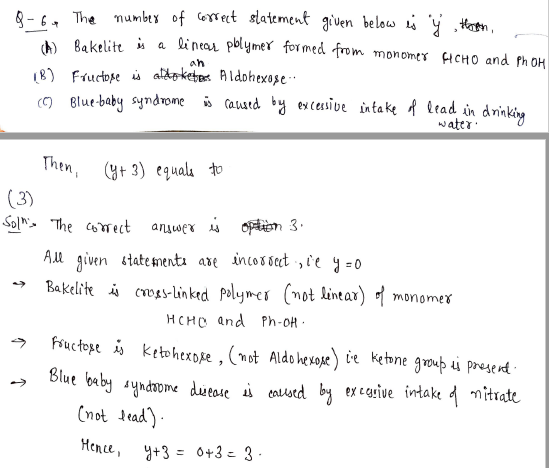 Q-6→ The number of correct statement given below is 'y', then,
(A) Bakelite is a linear polymer formed from monomer HCHO and PhOH
(B) Fructose is an Aldohexose..
(C) Blue-baby syndrome is caused by excessive intake of lead in drinking
water.
Then, (y+3) equals to
(3)
Solⁿ:→ The correct answer is option 3.
All given statements are incorrect, i.e y=0
→ Bakelite is cross-linked polymer (not linear) of monomer
HCHO and Ph-OH.
→ Fructose is Ketohexose, (not Aldohexose) i.e ketone group is present.
→ Blue baby syndrome disease is caused by excessive intake of nitrate
(not lead).
Hence, y+3 = 0+3 = 3.